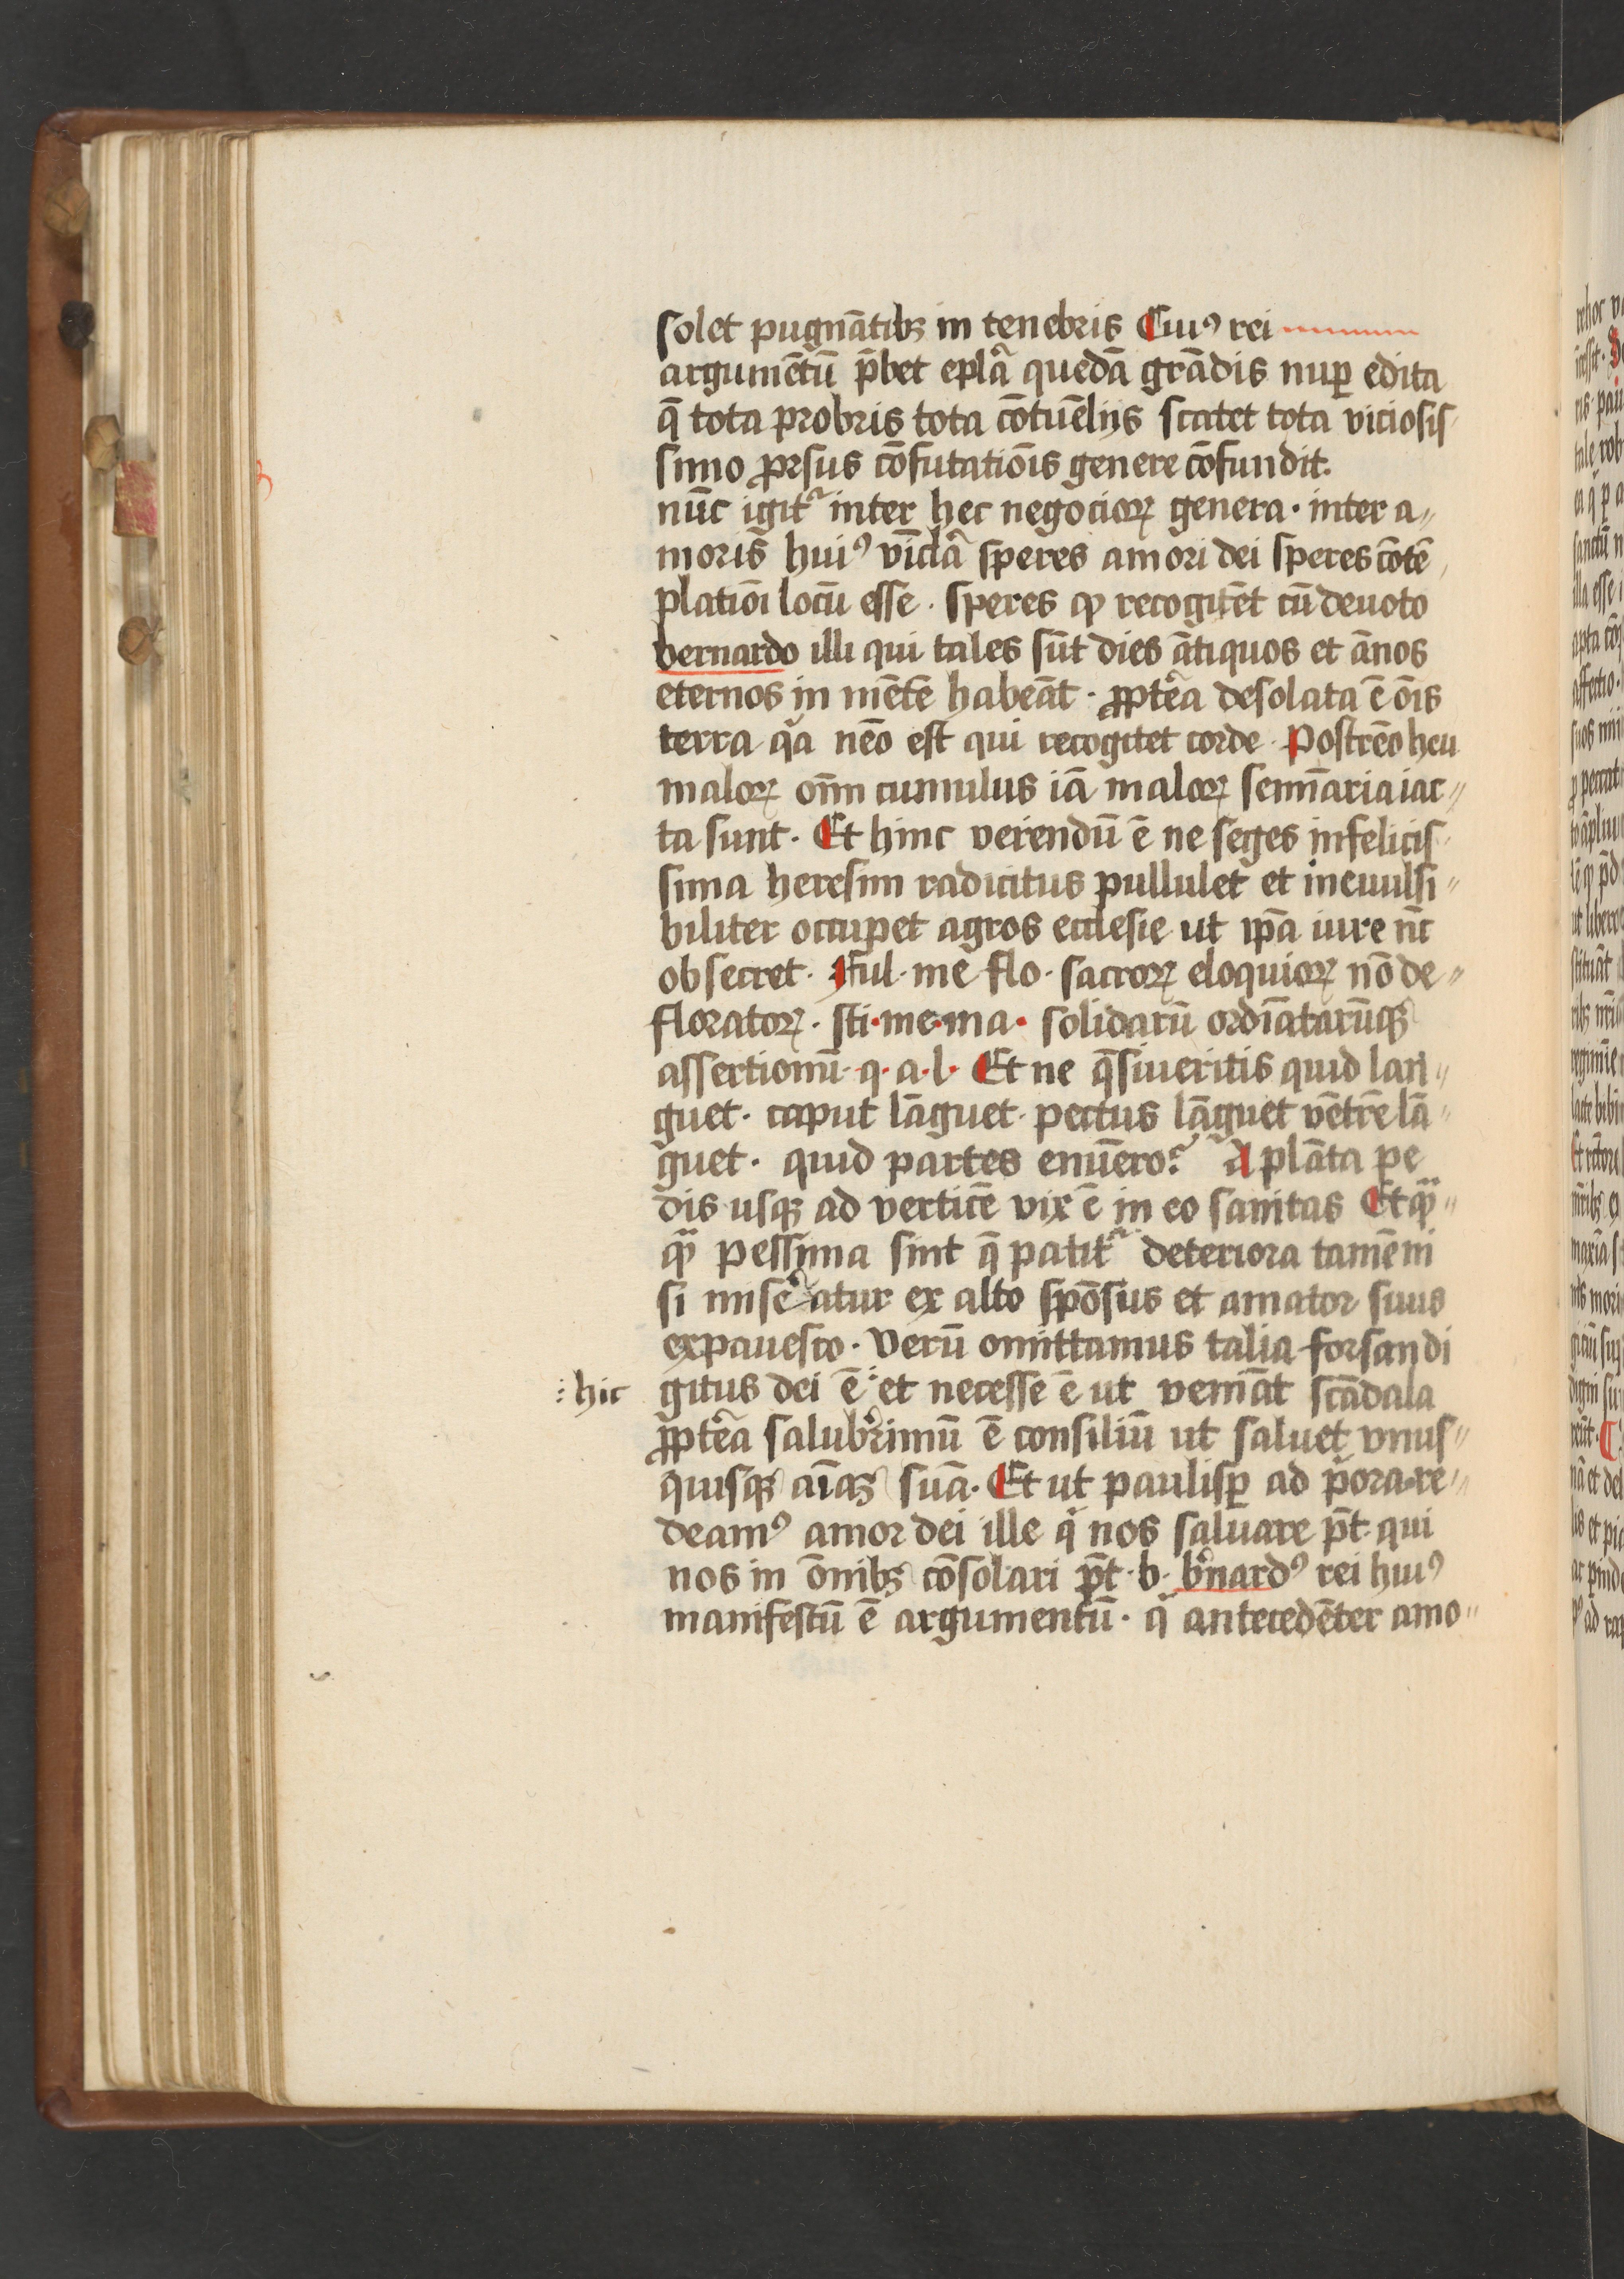 solet pugnātibꝫ in tenebris Cuiꝰ rei
argumētū p̄bet eplā quedā grādis nuꝑ edita
q̄ tota probris tota cōtuēlijs scatet tota viciosis
simo ꝓrsus cōfutatiōis genere cōfundit.
nūc igit᷑ inter hec negocioꝝ genera · inter a〃
moris huiꝰ vīcla speres amori dei speres cōtē
platiōi locū esse · speres ꝙ recogitēt cū deuoto
bernardo illi qui tales sūt dies ātiquos et ānos
eternos in mēte habeāt · ꝓptea desolata ē oīs
terra qa nēo est qui recogitet corde · Postrēo heu
maloꝝ oīm cumulus iā maloꝝ semīaria iac〃
ta sunt · Et hinc verendū ē ne seges infelicis
sima heresim radicitus pullulet et ineuulsi〃
biliter occupet agros ecclesie ut ip̄a iure nūc
obsecret · Ful · me flo · sacroꝝ eloquioꝝ nō de〃
floratoꝝ · sti · me · ma · solidarū ordīatarūqꝫ
assertionū · q · a · l · Et ne q̄siueritis quid lan〃
guet · caput lāguet · pectus lāguet vētre lā〃
guet · quid partes enūero? A plāta pe
dis usqꝫ ad verticē vix ē in eo sanitas Et qͣ〃
qͣ pessima sint q̄ patit᷑ deteriora tamē ni
si miseratur ex alto spōsus et amator suus
expauesco · Verū omittamus talia forsan di
: hic gitus dei ē : et necesse ē ut veniāt scādala
ꝓptea saluberimū ē consiliū ut saluet vnus〃
quisqꝫ aīaꝫ suā · Et ut paulisꝑ ad pͥora re〃
deamꝰ amor dei ille qͥ nos saluare p̄t qui
nos in ōnibꝫ cōsolari p̄t · b · b̓nardꝰ rei huiꝰ
manifestū ē argumentū · qͥ antecedēter amo〃